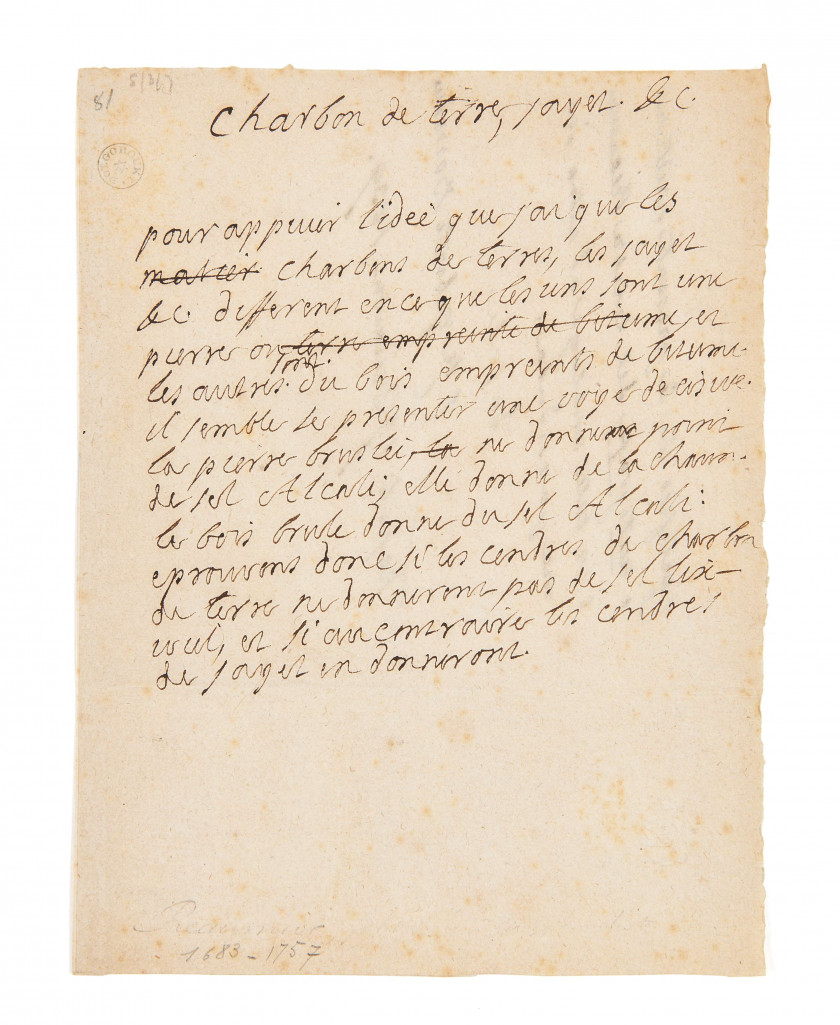 81 5/3/7
Charbon de terre, jayet. &c.
pour appuier l'ideé que j'ai que les
matier charbons de terres, les jayet
&c. different en ce que les uns sont une
pierre ou terre empreinte de bitume, et
les autres. sont. du bois empreints de bitume.
il semble se presenter une voye de
la pierre brulei, la ne donne point
de sel Alcali; elle donne de la chaux.
le bois brule donne du sel Alcali:
eprouvons donc si les cendres de charbon
de terre ne donneront pas de sel lixi-
viel, et si au contraire les cendres
de jayet en donneront.
Reaumur
1683 - 1757